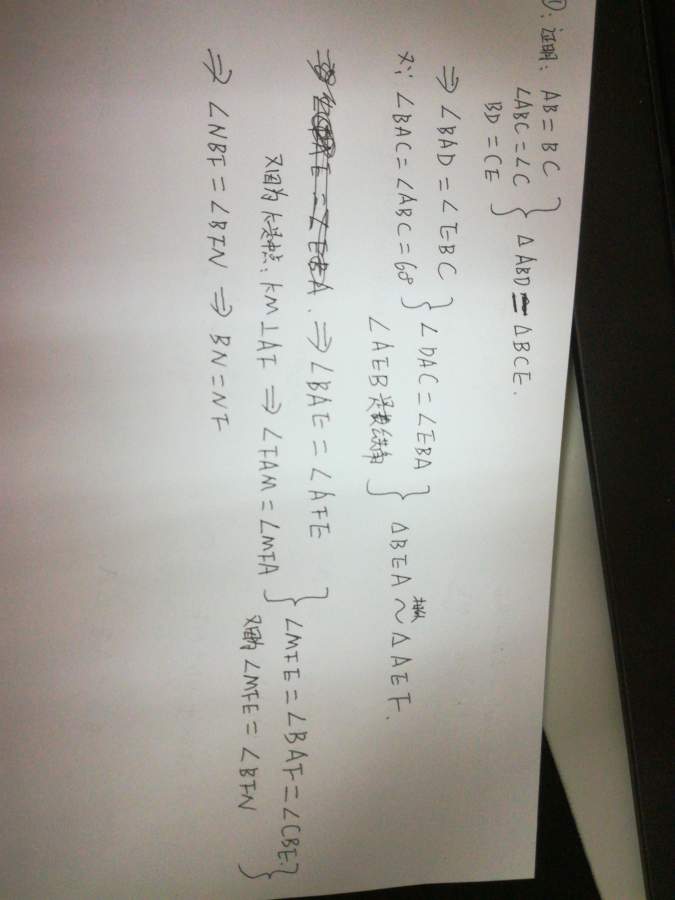 ①: 证明: AB = BC
∠ABC = ∠C
BD = CE
} △ABD ≌ △BCE.
⇒ ∠BAD = ∠EBC
又∵ ∠BAC = ∠ABC = 60°
} ∠DAC = ∠EBA
∠AEB 是公共角
} △BEA ∽ △AEF.
相似
⇒ ∠BAE = ∠AFE
又因为 K是中点, KM⊥AF ⇒ ∠FAM = ∠MFA
} ∠MFE = ∠BAF = ∠CBE.
又因为 ∠MFE = ∠BFN
}
⇒ ∠NBF = ∠BFN ⇒ BN = NF